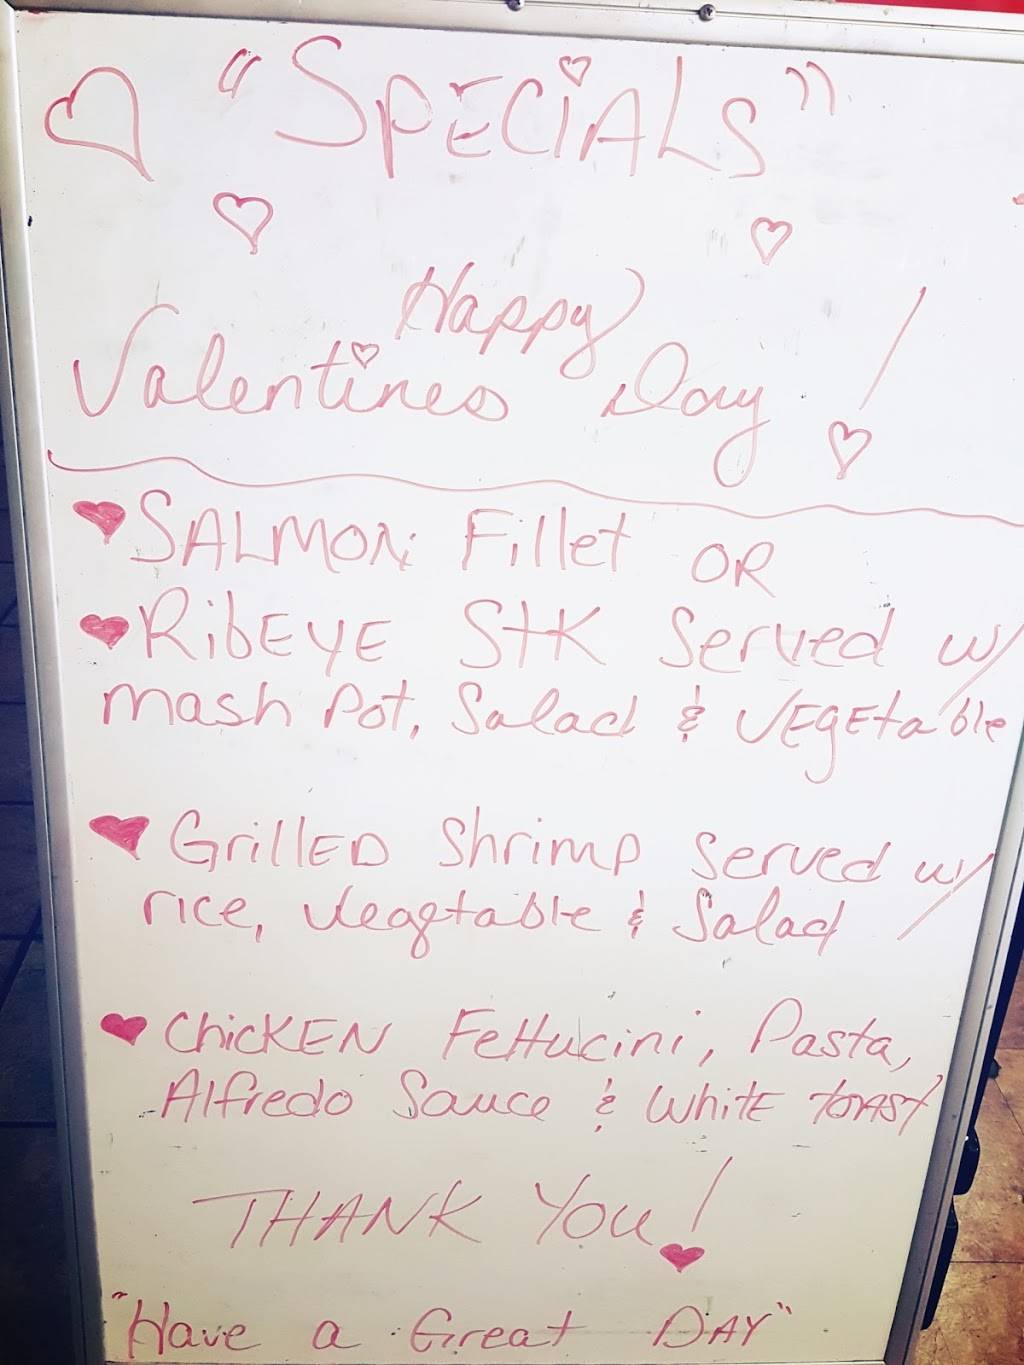 "SPECiALS"
Happy
Valentines Day !
SALMON Fillet OR
RibEYE StK Served w/
mash Pot, Salad & VEgEtable
GrillED Shrimp Served w/
rice, Vegetable & Salad
ChicKEN Fettucini, Pasta,
Alfredo Sauce & WhitE TOAST
THANK YOU!
"Have a Great DAY"